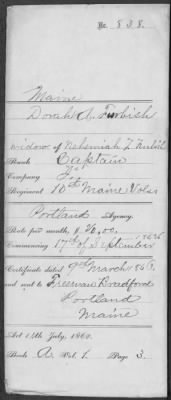 No. 838.
Maine
Dorah A. Furbish
widow of Nehemiah T. Furbish
Rank Captain
Company "F"
Regiment 10th Maine Vols
Portland Agency.
Rate per month, $ 20,00.
Commencing 17th of September 1862
Certificate dated 9th March 1863,
and sent to Freeman Bradford
Portland
Maine
Act 14th July, 1862.
Book A. Vol. 1. Page 3.